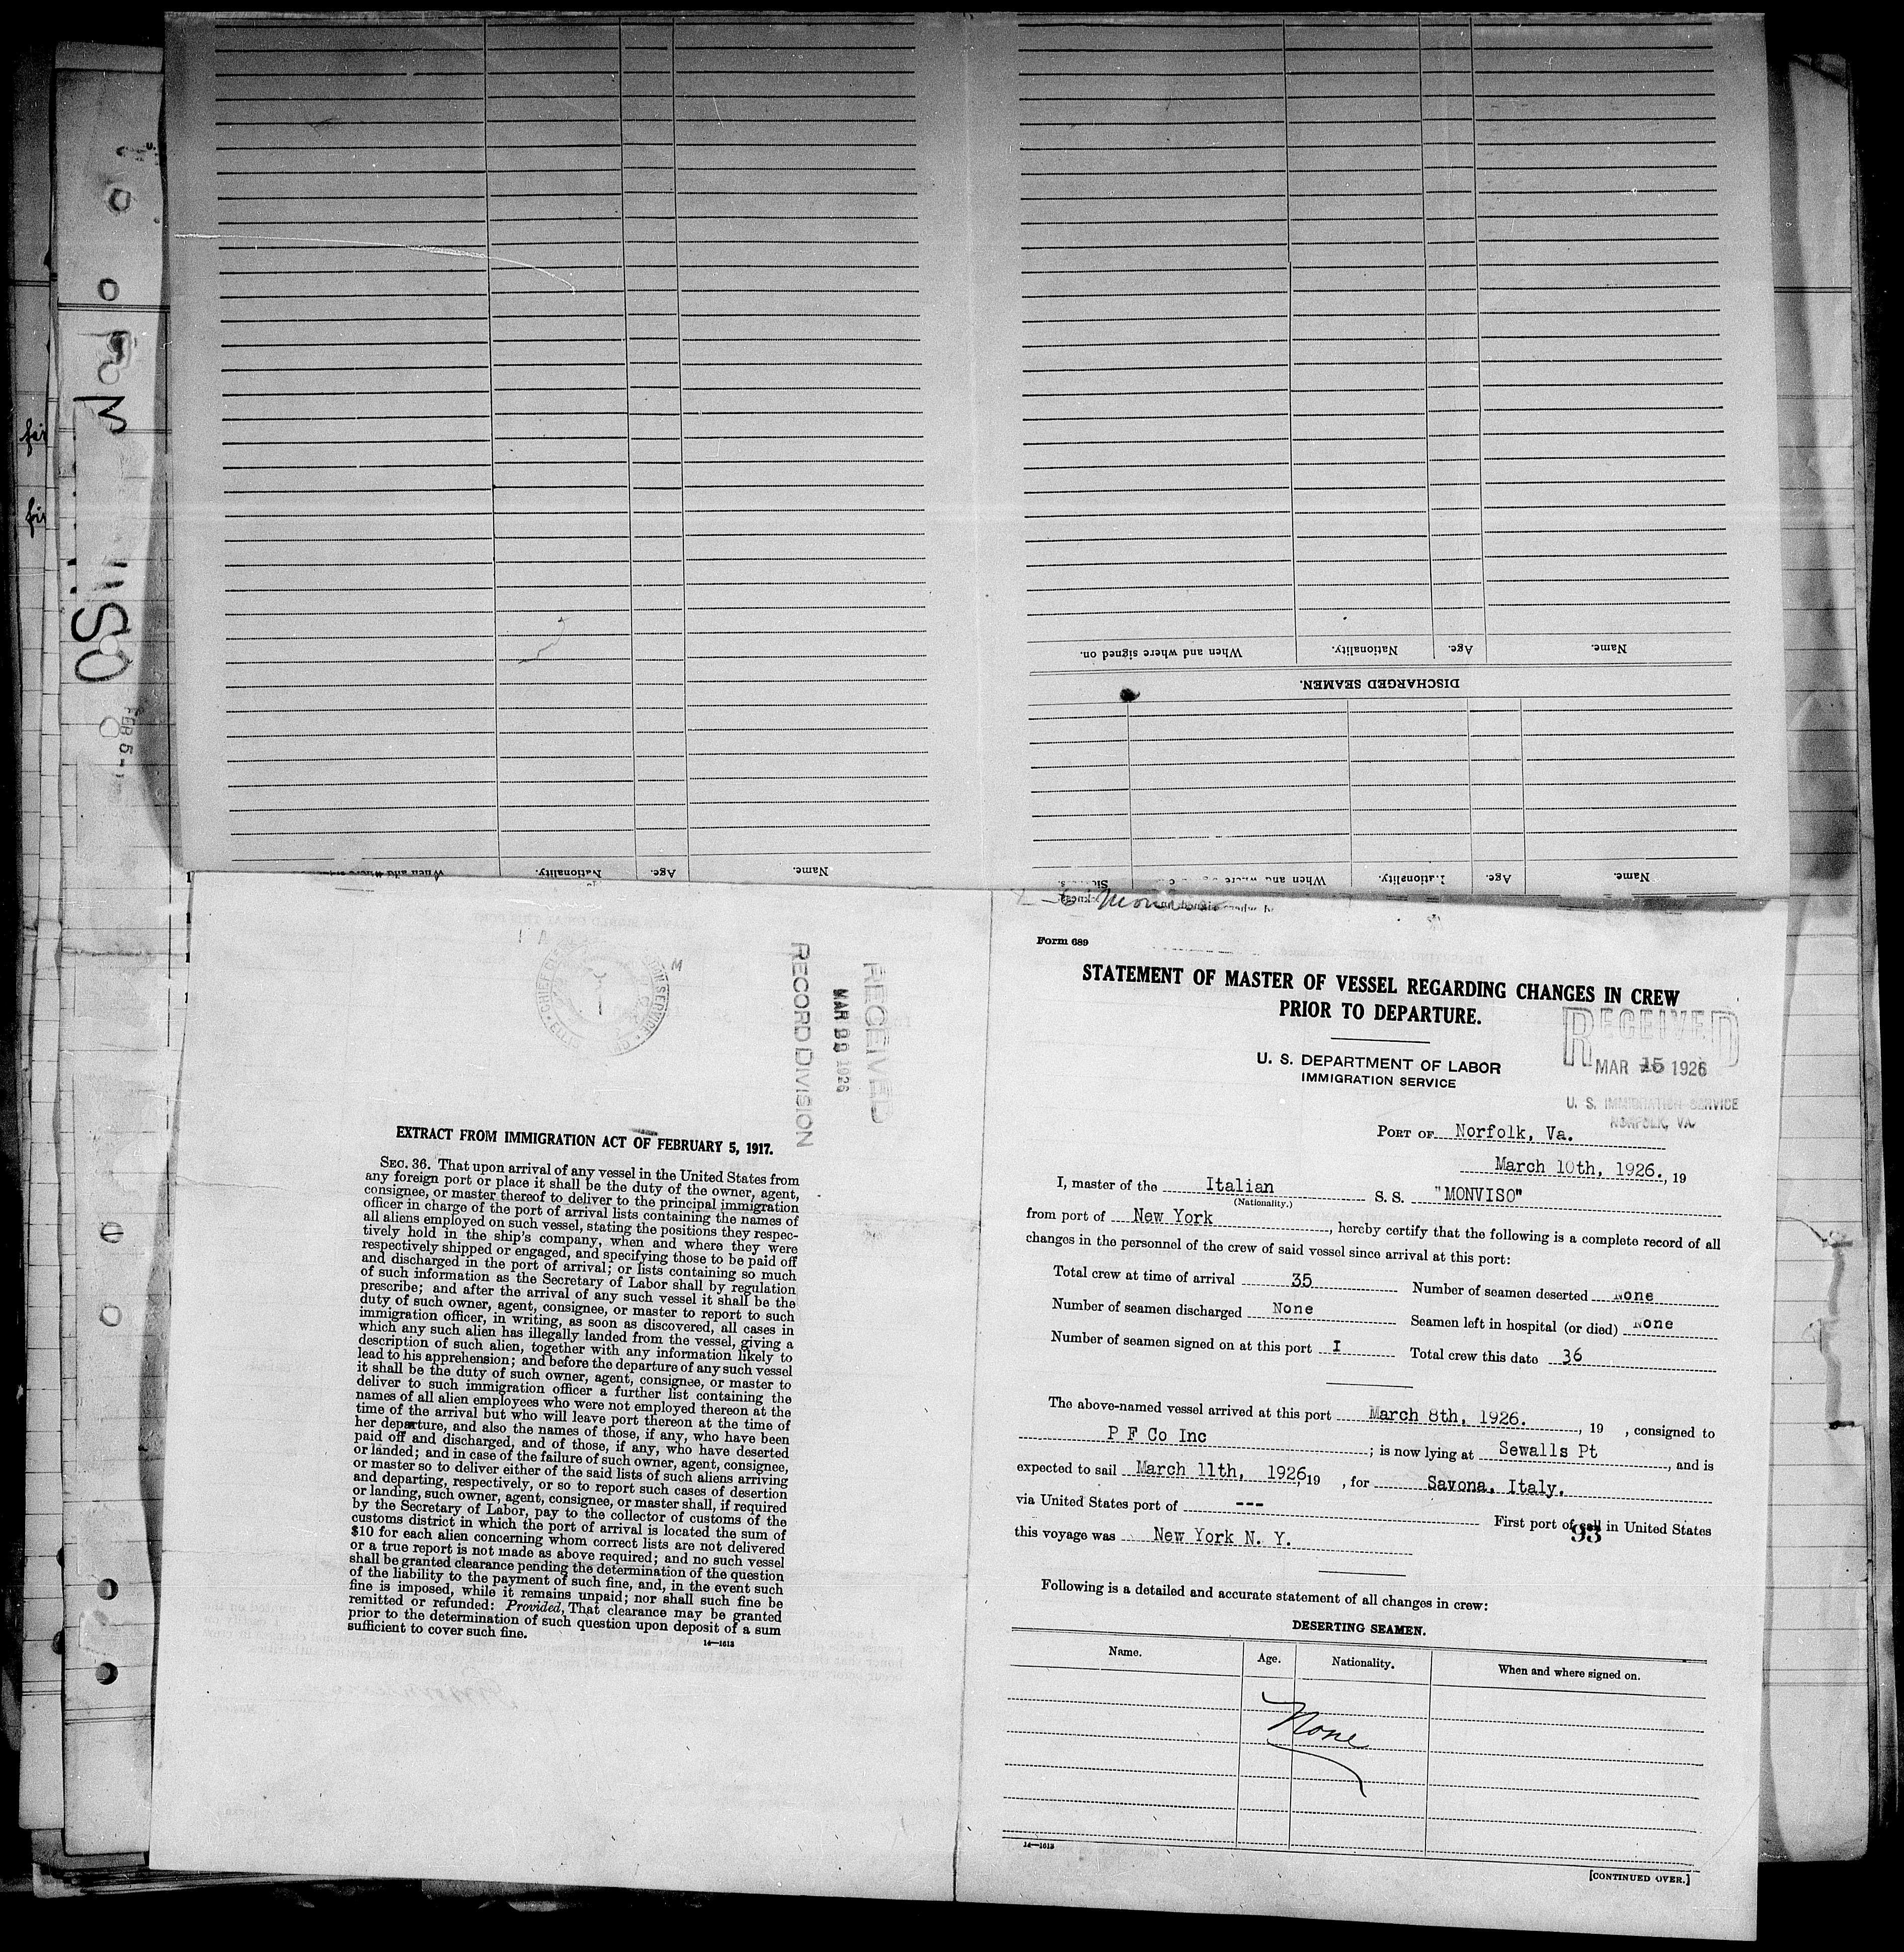 When and where signed on.
Nationality.
Age.
Name.
DISCHARGED SEAMEN.
Name.
Age.
Nationality.
Name.
Age.
Nationality.
When and where
FEB 5
RECEIVED
MAR 1926
RECORD DIVISION
EXTRACT FROM IMMIGRATION ACT OF FEBRUARY 5, 1917.
SEC. 36. That upon arrival of any vessel in the United States from
any foreign port or place it shall be the duty of the owner, agent,
consignee, or master thereof to deliver to the principal immigration
officer in charge of the port of arrival lists containing the names of
all aliens employed on such vessel, stating the positions they respec-
tively hold in the ship's company, when and where they were
respectively shipped or engaged, and specifying those to be paid off
and discharged in the port of arrival; or lists containing so much
of such information as the Secretary of Labor shall by regulation
prescribe; and after the arrival of any such vessel it shall be the
duty of such owner, agent, consignee, or master to report to such
immigration officer, in writing, as soon as discovered, all cases in
which any such alien has illegally landed from the vessel, giving a
description of such alien, together with any information likely to
lead to his apprehension; and before the departure of any such vessel
it shall be the duty of such owner, agent, consignee, or master to
deliver to such immigration officer a further list containing the
names of all alien employees who were not employed thereon at the
time of the arrival but who will leave port thereon at the time of
her departure, and also the names of those, if any, who have been
paid off and discharged, and of those, if any, who have deserted
or landed; and in case of the failure of such owner, agent, consignee,
or master so to deliver either of the said lists of such aliens arriving
and departing, respectively, or so to report such cases of desertion
or landing, such owner, agent, consignee, or master shall, if required
by the Secretary of Labor, pay to the collector of customs of the
customs district in which the port of arrival is located the sum of
$10 for each alien concerning whom correct lists are not delivered
or a true report is not made as above required; and no such vessel
shall be granted clearance pending the determination of the question
of the liability to the payment of such fine, and, in the event such
fine is imposed, while it remains unpaid; nor shall such fine be
remitted or refunded: Provided, That clearance may be granted
prior to the determination of such question upon deposit of a sum
sufficient to cover such fine.
14—1613
Form 689
STATEMENT OF MASTER OF VESSEL REGARDING CHANGES IN CREW
PRIOR TO DEPARTURE.
U. S. DEPARTMENT OF LABOR
IMMIGRATION SERVICE
RECEIVED
MAR 15 1926
U. S. IMMIGRATION SERVICE
NORFOLK, VA.
PORT OF Norfolk, Va.
March 10th, 1926., 19
I, master of the Italian S. S. "MONVISO"
(Nationality.)
from port of New York, hereby certify that the following is a complete record of all
changes in the personnel of the crew of said vessel since arrival at this port:
Total crew at time of arrival 35 Number of seamen deserted None
Number of seamen discharged None Seamen left in hospital (or died) None
Number of seamen signed on at this port I Total crew this date 36
The above-named vessel arrived at this port March 8th, 1926., 19 , consigned to
P F Co Inc ; is now lying at Sewalls Pt, and is
expected to sail March 11th, 1926,19 , for Savona, Italy.
via United States port of --- First port of call in United States
93
this voyage was New York N. Y.
Following is a detailed and accurate statement of all changes in crew:
DESERTING SEAMEN.
Name. Age. Nationality. When and where signed on.
None
14—1613
[CONTINUED OVER.]